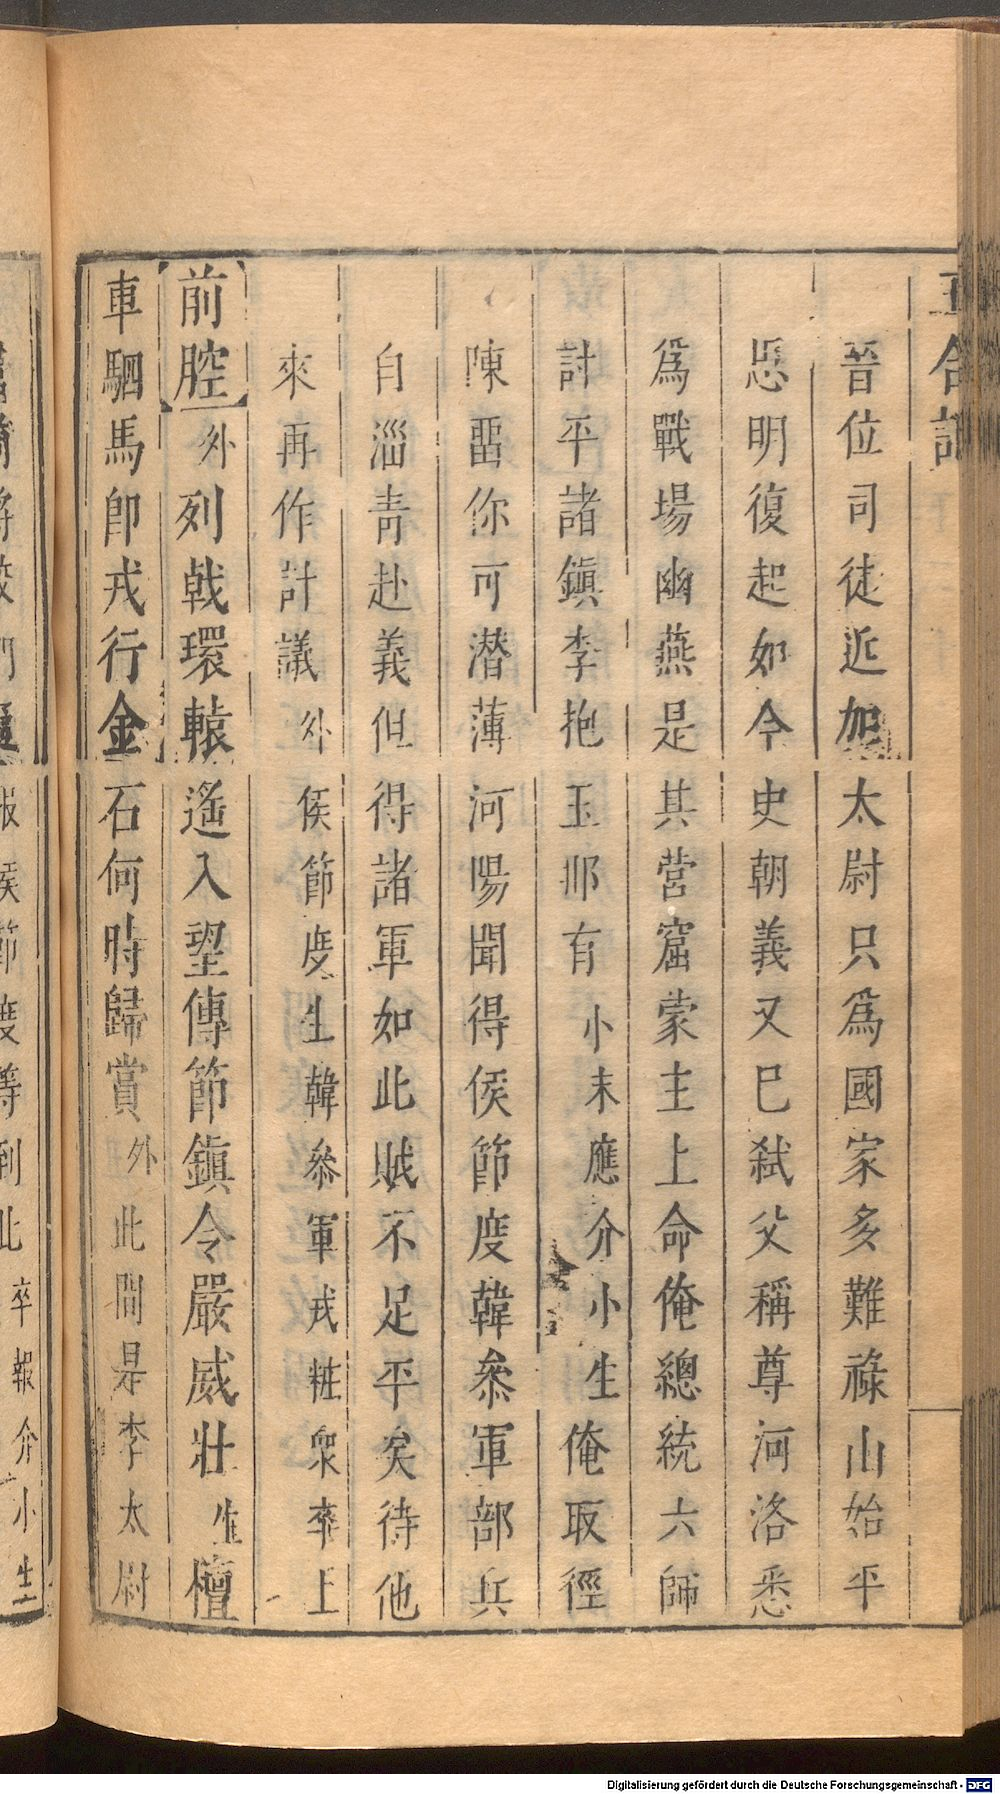 玉合記
晉位司徒近加太尉只爲國家多難祿山始平
思明復起如今史朝義又巳弑父稱尊河洛悉
爲戰場幽燕是其營窟蒙主上命俺總統六師
討平諸鎭李抱玉那有小末應介小生俺取徑
陳畱你可潜薄河陽聞得侯節度韓叅軍部兵
自淄青赴義但得諸軍如此賊不足平矣待他
來再作計議外侯節度生韓叅軍戎粧衆卒上
前腔外列戟環轅遙入望傳節鎭令嚴威壯生檀
車駟馬卽戎行金石何時歸賞外此間是李太尉
度等到此卒報介小生
Digitalisierung gefördert durch die Deutsche Forschungsgemeinschaft - DFG